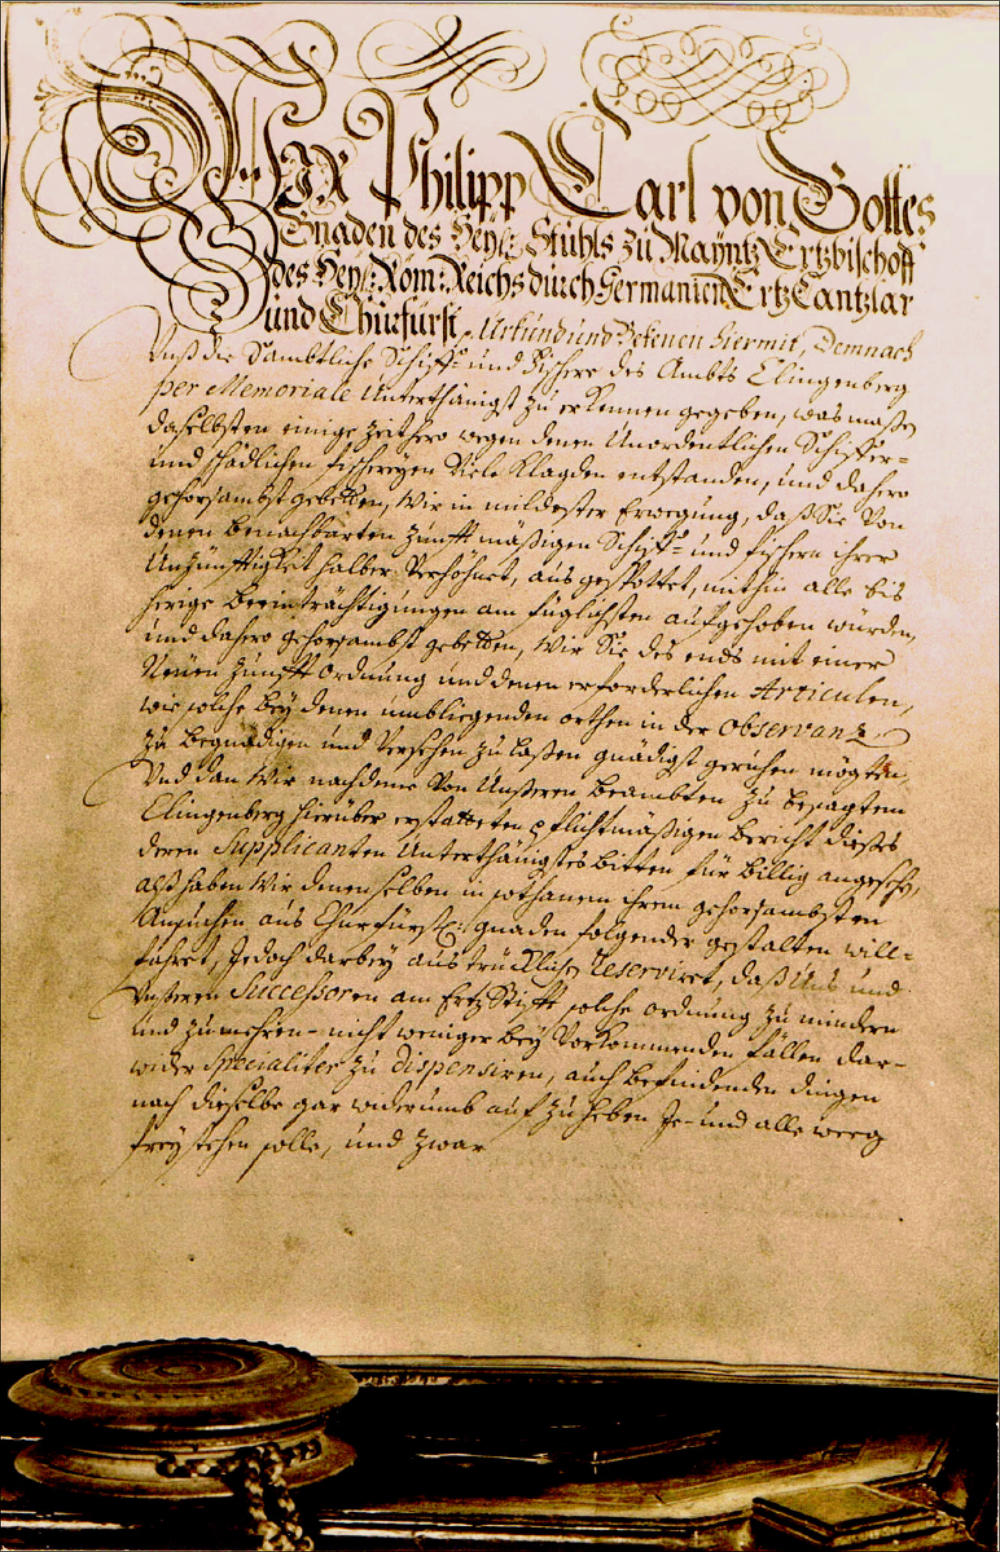 Wir Philipp Carl von Gottes
Gnaden des Heyl: Stuhls zu Mayntz Ertzbischoff
des Heyl: Röm: Reichs durch Germanien Ertz Cantzlar
und Churfürst, Urkund und Bekenen hiermit, Demnach
Unß die Sambtliche Schiff- und Fischere des Ambts Clingenberg
per Memoriale Unterthänigst zu erkennen gegeben, was maßen
daselbsten einige Zeithero wegen denen Unordentlichen Schiffer-
und schädlichen fischereyen Viele Klagden entstanden, und dahero
gehorsambst gebetten, Wir in mildester Erwegung, daß Sie Von
denen benachbarten Zunfft mäßigen Schiff- und fischern ihrer
Unzünfftigkeit halber Verhöhnet, ausgespottet, mithin alle bis
herige beeinträchtigungen am füglichsten aufgehoben würden,
und dahero gehorsambst gebetten, Wir Sie des ends mit einer
Neuen Zunfft ordnung und denen erforderlichen Articulen,
wie solche bey denen umbliegenden orthen in der Observantz
zu begnadigen und Versehen zu laßen gnädigst geruhen mögten,
Und dan Wir nachdeme Von Unßeren beambten zu besagtem
Clingenberg hierüber erstatteten pflichtmäßigen bericht dießes
deren Supplicanten Unterthänigstes bitten für billig angesehen,
alß haben Wir denenselben in sothanem ihrem gehorsambsten
Ansuchen aus Churfürstl: gnaden folgender gestalten will-
fahret, Jedoch darbey austrücklichen Reserviret, daß Uns und
Unßeren Successoren am Ertz Stifft solche ordnung zu mindern
und zu mehren- nicht weniger bey Vorkommenden fällen dar-
wider Specialiter zu dispensiren, auch befindenden dingen
nach dieselbe gar widerumb auf zu heben Je- und alle weeg
frey stehen solle, und zwar